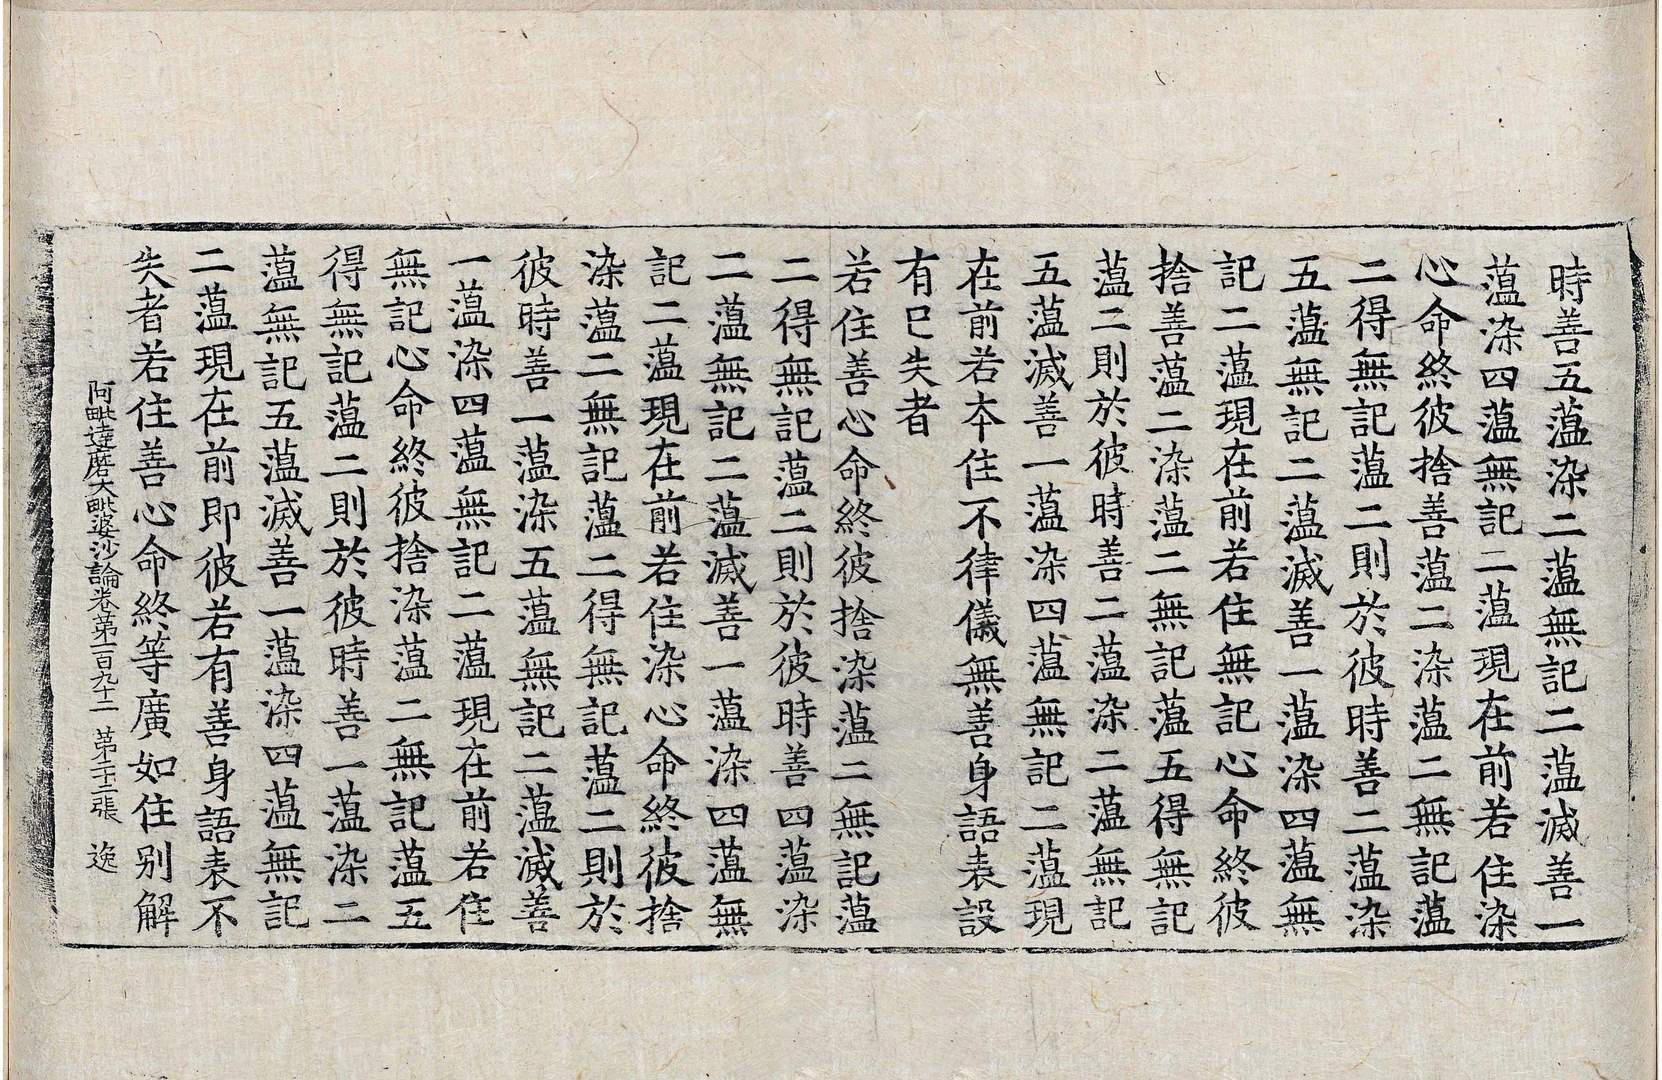 時善五薀染二薀無記二薀滅善一
薀染四薀無記二薀現在前若住染
心命終彼捨善薀二染薀二無記薀
二得無記薀二則於彼時善二薀染
五薀無記二薀滅善一薀染四薀無
記二薀現在前若住無記心命終彼
捨善薀二染薀二無記薀五得無記
薀二則於彼時善二薀染二薀無記
五薀滅善一薀染四薀無記二薀現
在前若本住不律儀無善身語表設
有已失者
若住善心命終彼捨染薀二無記薀
二得無記薀二則於彼時善四薀染
二薀無記二薀滅善一薀染四薀無
記二薀現在前若住染心命終彼捨
染薀二無記薀二得無記薀二則於
彼時善一薀染五薀無記二薀滅善
一薀染四薀無記二薀現在前若住
無記心命終彼捨染薀二無記薀五
得無記薀二則於彼時善一薀染二
薀無記五薀滅善一薀染四薀無記
二薀現在前即彼若有善身語表不
失者若住善心命終等廣如住別解
阿毗達磨大毗婆沙論卷第一百九十二 第二十二張 逸